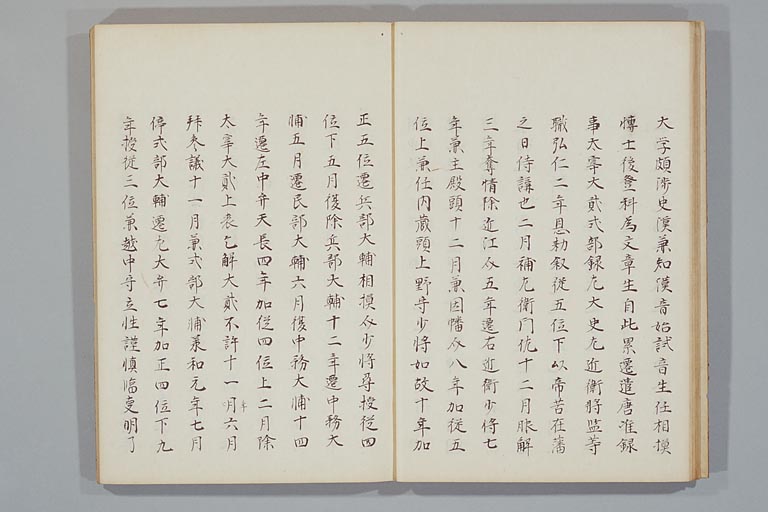 大学頗渉史漢兼知漢音始試音生任相摸
博士後登科為文章生自此累遷遣唐准録
事大宰大貳式部録左大史左近衛將監等
職弘仁二年恩勅叙從五位下以帝昔在藩
之日侍講也二月補左衛門佐十二月服解
三年奪情除近江介五年遷右近衛少將七
年兼主殿頭十二月兼因幡介八年加從五
位上兼任内蔵頭上野守少將如故十年加
正五位遷兵部大輔相摸介少將尋授從四
位下五月復除兵部大輔十二年遷中務大
輔五月遷民部大輔六月復中務大輔十四
年遷左中弁天長四年加從四位上二月除
大宰大貳上表乞解大貳不許十一月六月
拝参議十一月兼式部大輔承和元年七月
停式部大輔遷左大弁七年加正四位下九
年授從三位兼越中守立性謹慎臨夏明了